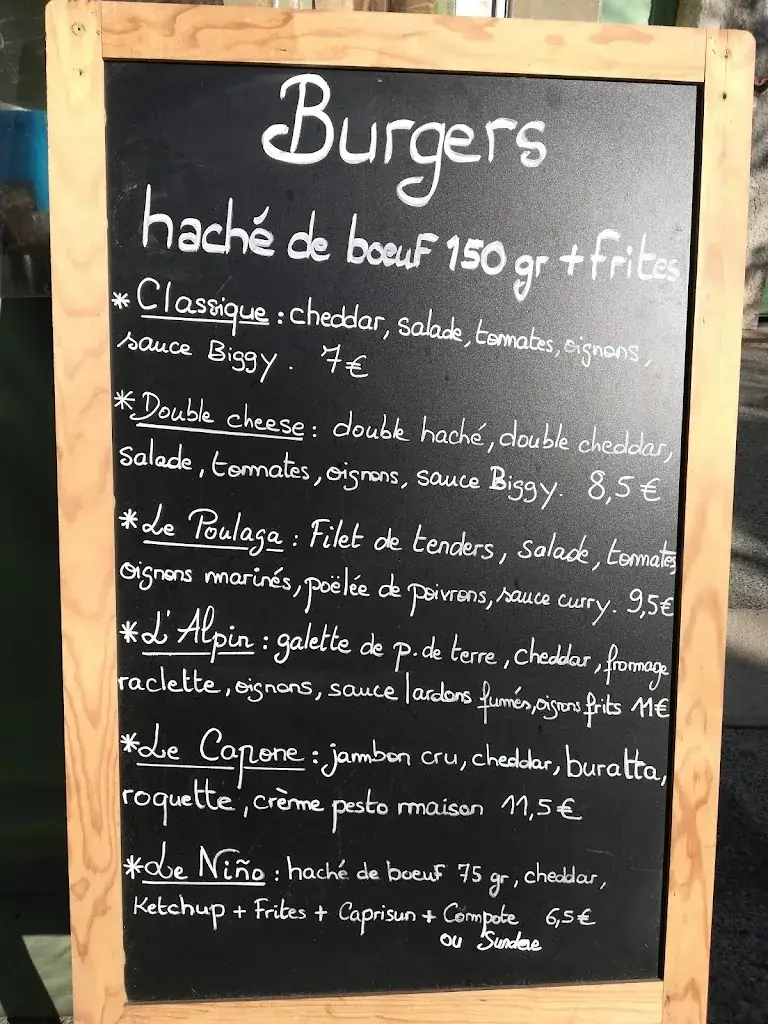 Burgers
haché de boeuf 150 gr + frites
* Classique : cheddar, salade, tommates, oignons,
sauce Biggy. 7€
* Double cheese : double haché, double cheddar,
salade, tommates, oignons, sauce Biggy. 8,5€
* Le Poulaga : Filet de tenders, salade, tommates
oignons marinés, poëlée de poivrons, sauce curry. 9,5€
* L'Alpin : galette de p. de terre, cheddar, fromage
raclette, oignons, sauce lardons fumés, oignons frits 11€
* Le Capone : jambon cru, cheddar, buratta,
roquette, crème pesto maison 11,5€
* Le Niño : haché de boeuf 75 gr, cheddar,
Ketchup + Frites + Caprisun + Compote 6,5€
ou Sundae